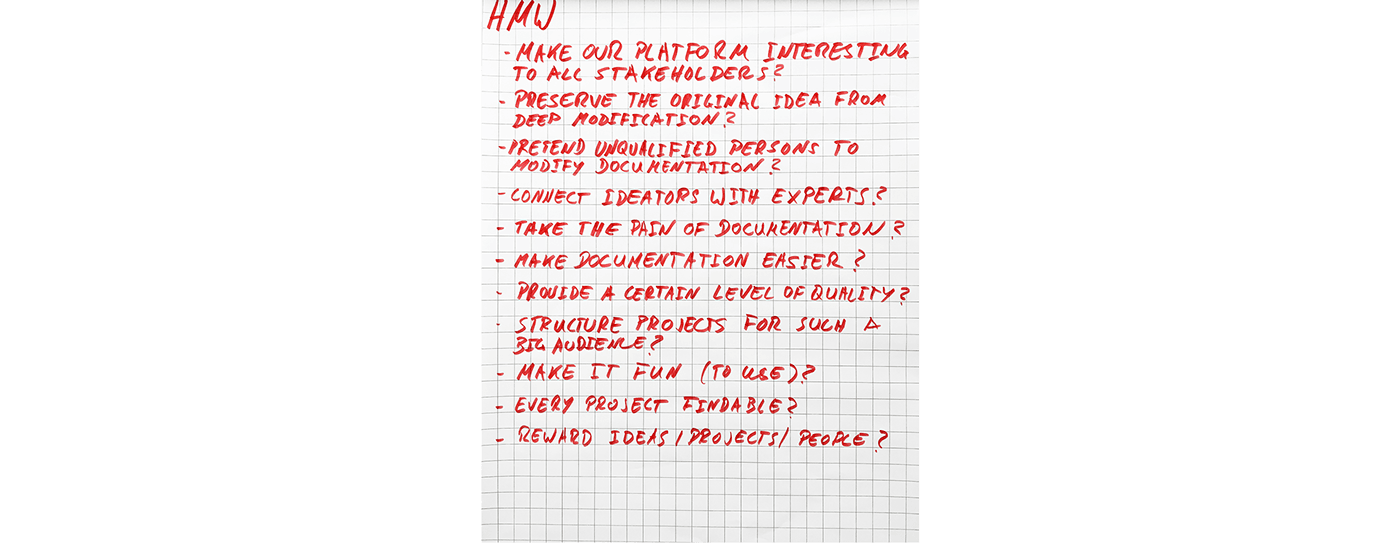 HMW
- MAKE OUR PLATFORM INTERESTING
TO ALL STAKEHOLDERS?
- PRESERVE THE ORIGINAL IDEA FROM
DEEP MODIFICATION?
- PRETEND UNQUALIFIED PERSONS TO
MODIFY DOCUMENTATION?
- CONNECT IDEATORS WITH EXPERTS?
- TAKE THE PAIN OF DOCUMENTATION?
- MAKE DOCUMENTATION EASIER?
- PROVIDE A CERTAIN LEVEL OF QUALITY?
- STRUCTURE PROJECTS FOR SUCH A
BIG AUDIENCE?
- MAKE IT FUN (TO USE)?
- EVERY PROJECT FINDABLE?
- REWARD IDEAS/PROJECTS/PEOPLE?